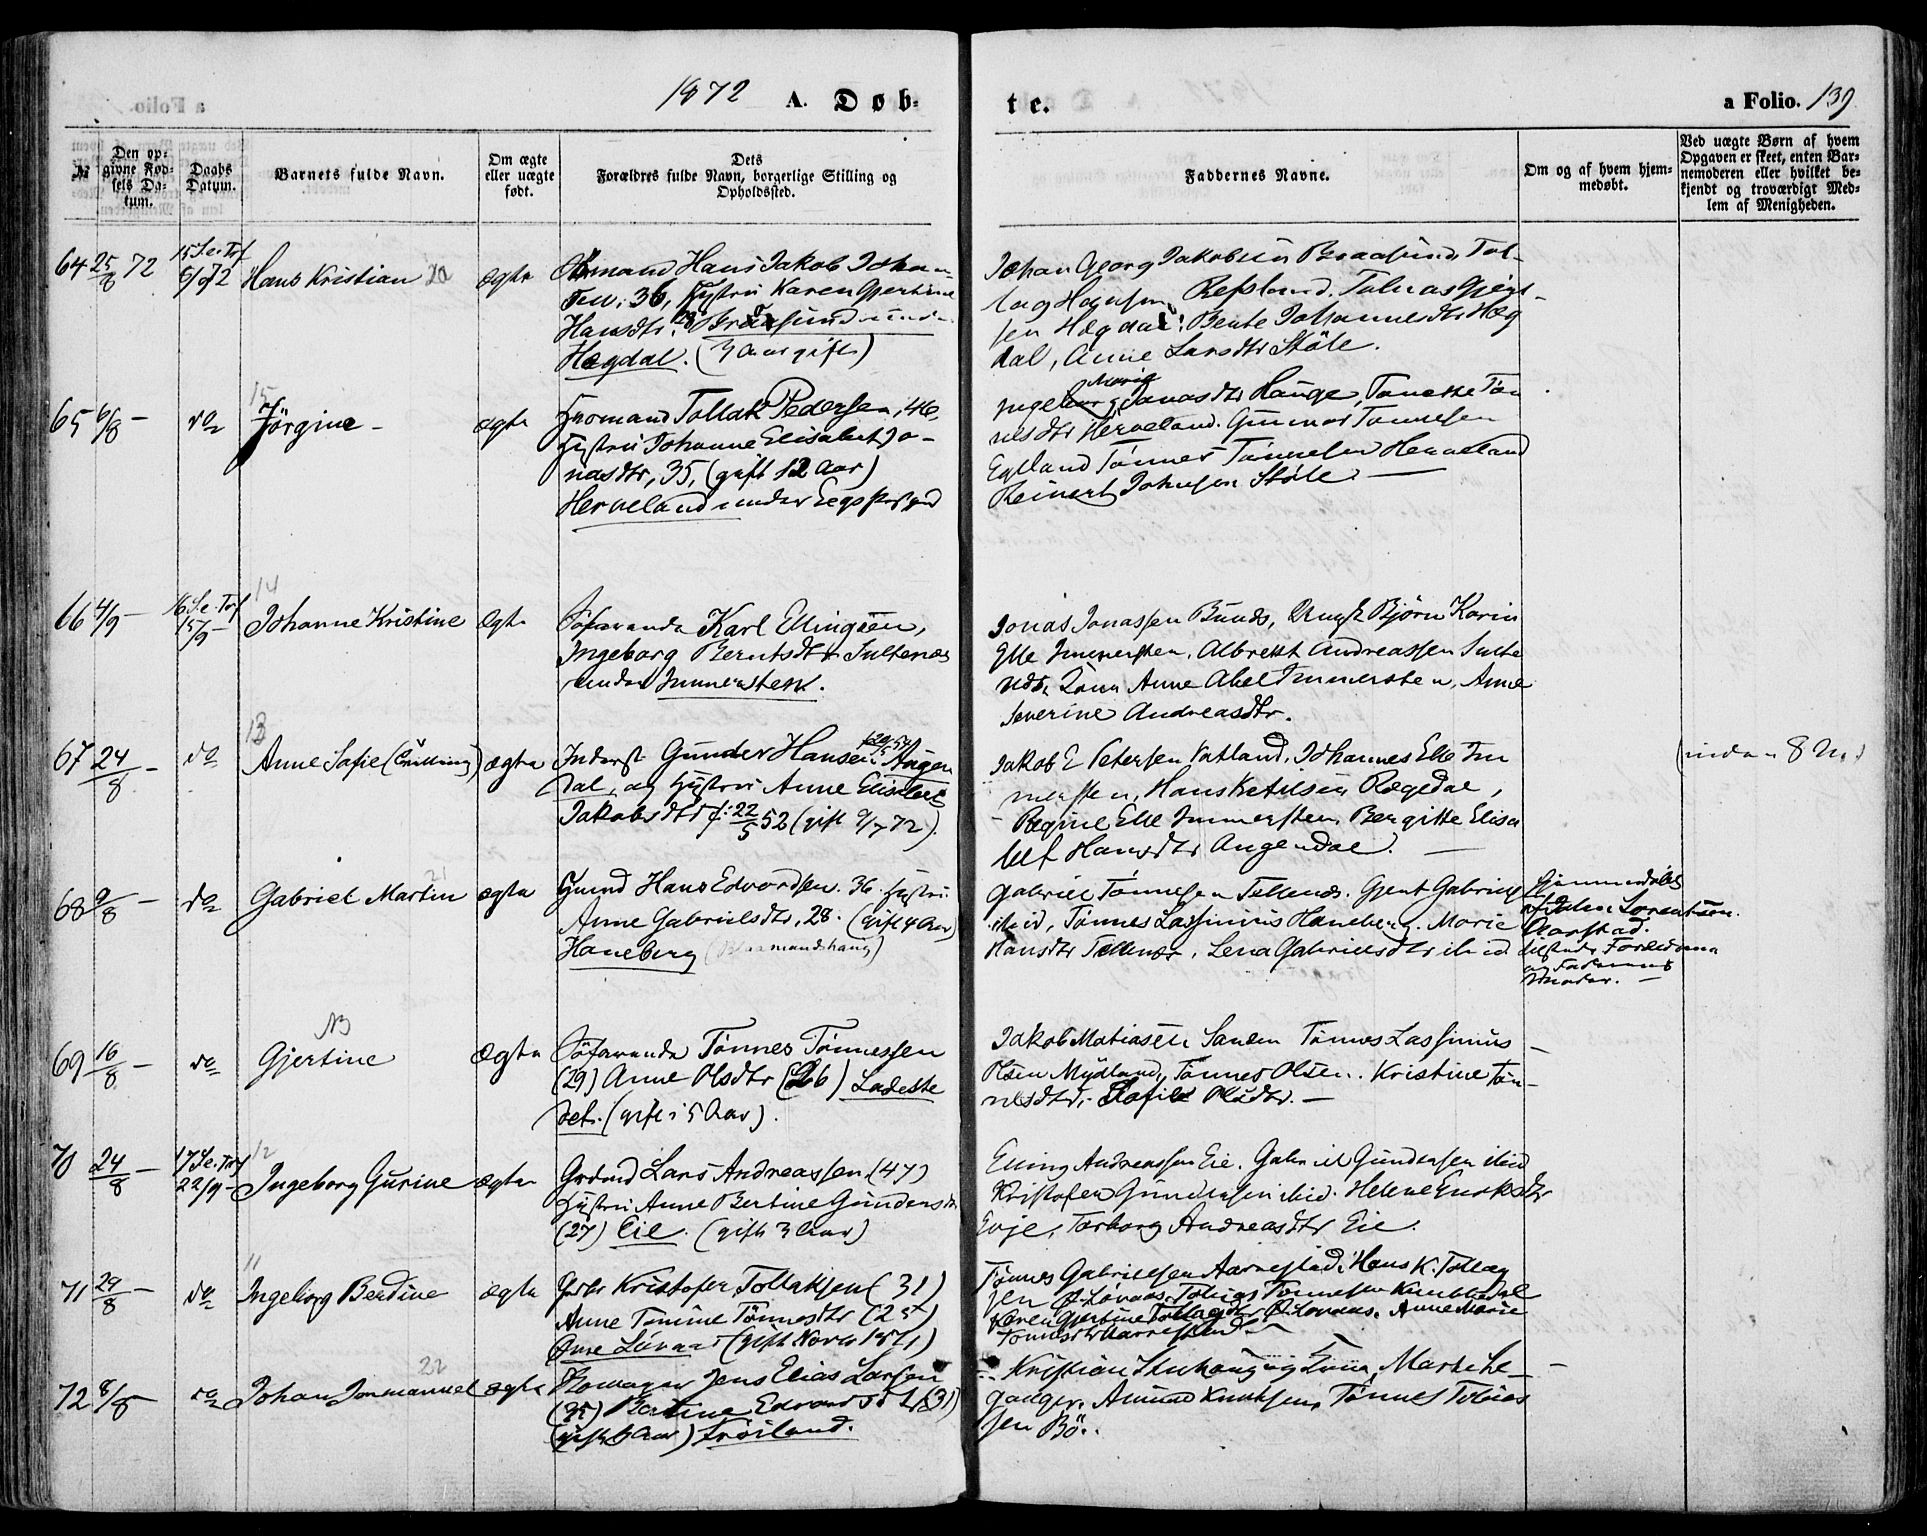 1872 A. Døb-
te. a Folio. 139
№
Den op-
givne Fød-
sels Da-
tum.
Daabs
Datum.
Barnets fulde Navn.
Om ægte
eller uægte
født.
Dets
Forældres fulde Navn, borgerlige Stilling og
Opholdssted.
Faddernes Navne.
Om og af hvem hjem-
medøbt.
Ved uægte Børn af hvem
Opgaven er skeet, enten Bar-
nemoderen eller hvilket be-
kjendt og troværdigt Med-
lem af Menigheden.
64 25/8 72
15 S.e.Trf
Hans Kristian 20
ægte
Hans Jakob Johan-
sen, 36, Hustru Karen Gjertine
Hansdtr, 28 Braasund under
Hægdal. (3 Aar gift)
Johan Georg Jakobsen Braasund, Tol-
lag Refsland. Tobias
sen Hægdal, Bente Johannesdtr Hæg
dal, Anne Larsdtr Støle.
65 6/8 —
do
15
Jørgine —
ægte
Tollak Pedersen, 46,
Hustru Johanne Elisabet Jo-
nasdtr, 35, (gift 12 Aar)
Herveland under
Marie
Ingeborg Jonasdtr Hauge, Tonette Tøn
nesdtr Herveland. Gunnar Tønnesen
Egeland Tønnes Tønnesen Herveland
Reinert Johnsen Støle. —
66 4/9 —
16 S.e.Trf
15/9 —
14
Johanne Kristine
ægte
Søfarende Karl Ellingsen,
Ingeborg Berntsdtr Sultenæs
under Immersten.
Jonas Jonassen Bunds, Bjørn Karin
Elle Immersten, Albrekt Andreassen Sulte
næs, Kona Anne Abel Immersten, Anne
Severine Andreasdtr.
67 24/8 —
do
13
Anne Sofie (Tvilling)
ægte
Inderst Gunder Hansen Angen
dal, og Hustru Anne Elisabet
Jakobsdtr f: 22/5 52 (gift 9/7 72).
Jakob E Petersen Vatland, Johannes Elle Im
mersten, Hans Ketilsen Rægedal,
Regine Elle Immersten, Bergitte Elisa
bet Hansdtr Angendal. —
68 9/8 —
do
21
Gabriel Martin
ægte
Hans Edvardsen. 36. Hustru
Anne Gabrielsdtr, 28. (gift 4 Aar)
Haneberg (Blaamandshaug)
Gabriel Tønnesen Tellenæs. Gjert Gabriels
ibid, Tønnes Lassinius Haneberg. Marie
Hansdtr Tellenæs, Lena Gabrielsdtr ibid
Hjemmedøbt
af Lorentsen
Aarstad.
69 16/8 —
do
NB
Gjertine
ægte
Søfarende Tønnes Tønnessen
(29) Anne Olsdtr (26) Ladeste
det. (gift i 5 Aar).
Jakob Matiasen Sanden Tønnes Lassinius
Olsen Mydland, Tønnes Olsen. Kristine Tøn-
nesdtr, Sofie Olsdtr. —
70 24/8 —
17 S.e.Trf
22/9 —
12
Ingeborg Gurine
ægte
Grdmd Lars Andreassen (47)
Hustru Anne Bertine Gundersdtr
(27) Eie. (gift 3 Aar)
Elling Andreassen Eie. Gabriel Gundersen ibid
Kristofer Gundersen ibid. Helene
Evje, Torborg Andreasdtr Eie.
71 29/8 —
do
11
Ingeborg Berdine
ægte
Kristofer Tollaksen (31)
Anne Tomine Tønnesdtr (25)
Øvre Løvaas (gift Novbr 1871)
Tønnes Gabrielsen Aarrestad, Hans K. Tollag
sen Ø. Løvaas, Tobias Tønnesen
Karen Gjertine Tollagsdtr Ø. Løvaas. Anne Marie
Tønnesdtr Aarrestad. —
72 8/8 —
do
22
Johan Immanuel
ægte
Skomager Jens Elias Larsen
(35) Bertine Edvardsdtr (31)
Trøiland.
Kristian og
Amund Knutsen, Tønnes Tobias
sen Bø.